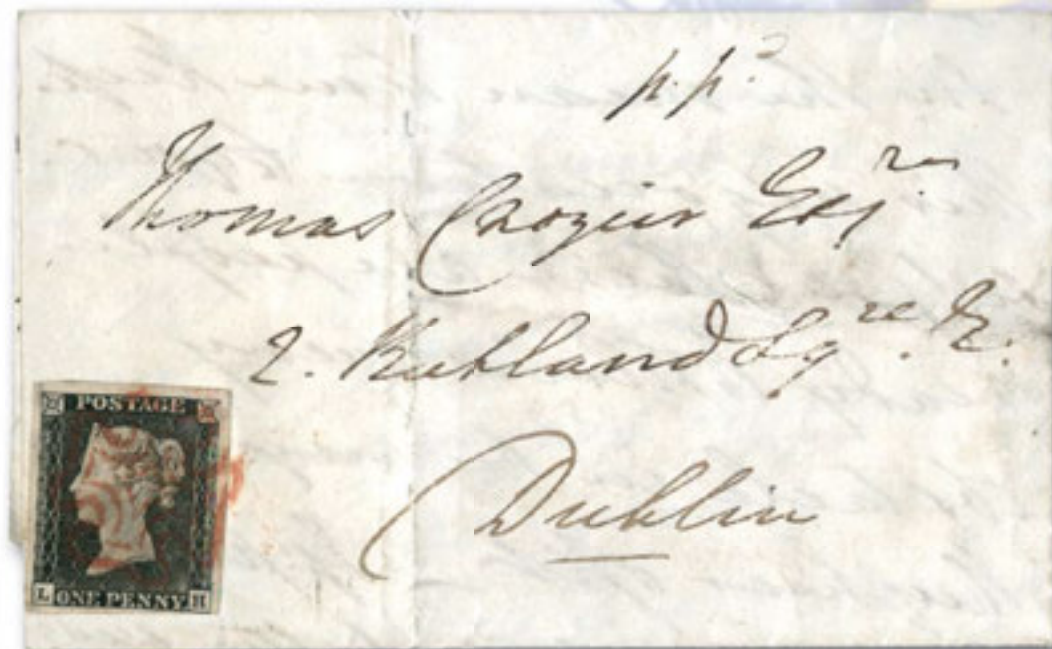 p.p.d
Thomas Crozier Esqre
2. Rutland Sqre E.
Dublin
POSTAGE
L ONE PENNY H